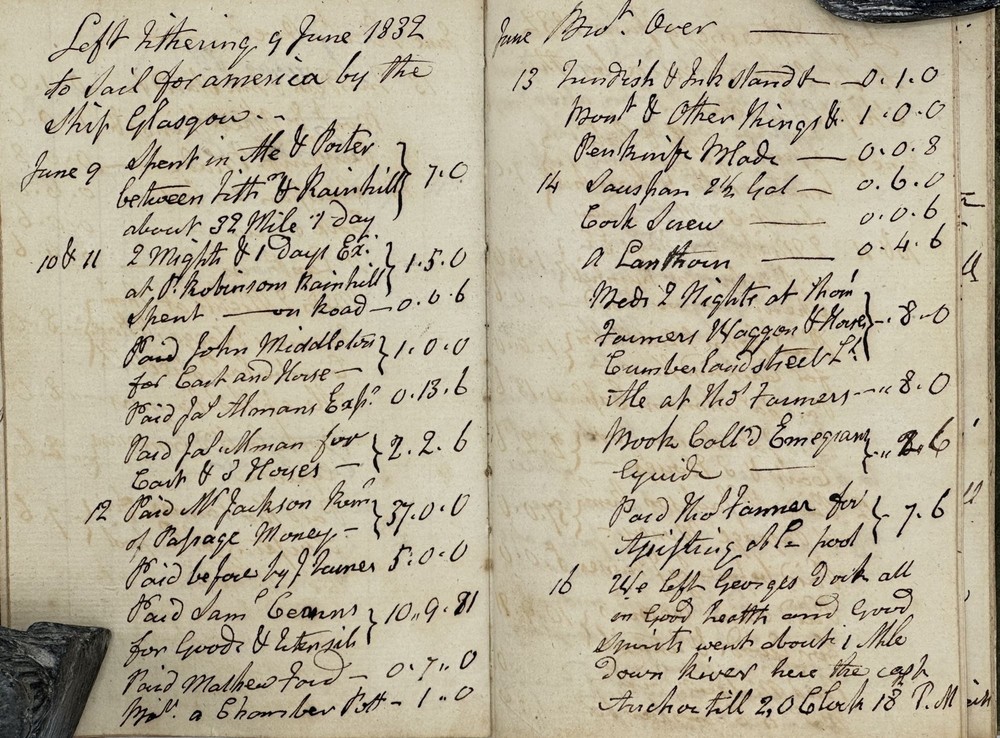 Left Tithering 9 June 1832
to Sail for america by the
Ship Glasgow. --
June 9 Spent in Ale & Porter
between Tith.g & Rainhill 7.0
about 32 Mile 1 day
10 & 11 2 Nights & 1 Days Ex:
at P. Robinsons Rainhill 1.5.0
Spent — on Road — 0.0.6
Paid John Middleton 1.0.0
for Cart and Horse —
Paid Jas Almans Exps 0.13.6
Paid Jas Alman for 2.2.6
Cart & 3 Horses —
12 Paid Mr Jackson Rem.
of Passage Money — 37.0.0
Paid before by J Turner 5.0.0
Paid Saml 10,,9.
for Goods & Utensils
Paid Mathew Ford — 0.7,,0
a Chamber Pott — 1,,0
June Brot. Over —
13 Tundish & Ink stand & — 0.1.0
& Other Things &. 1.0.0
Penknife Blade — 0.0.8
14 Sauspan 2½ Gal — 0.6.0
Cork Screw — 0.0.6
A Lanthorn — 0.4.6
Beds 2 Nights at Thos
Farmers Waggon & Horses -.8.0
Cumberland street L.
Ale at Thos Farmers -- ,, 8.0
Book Call'd Emegrant
Guide — .,, 2.6
Paid Thos Farmer for
Assisting 7.6
16 We left Georges Dock all
in Good health and Good
Spirits went about 1 Mile
down River here the cast
Anchor till 2,0 Clock 18 P.M